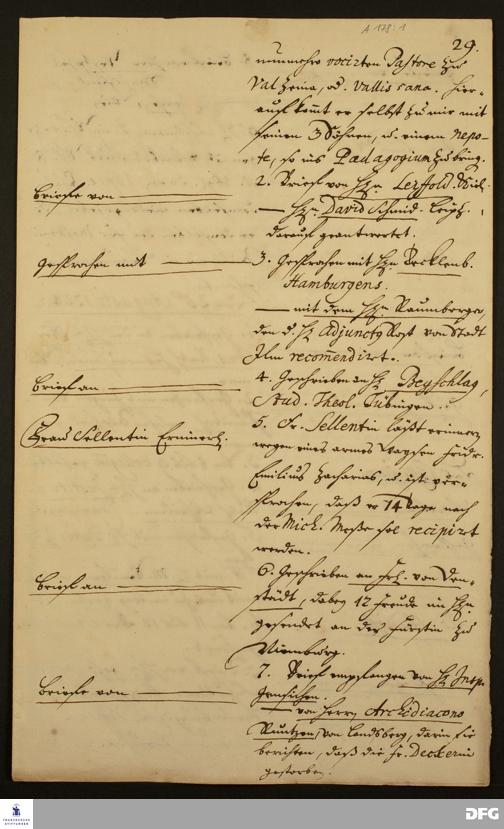 A 178:1
29.
nunmehro vocirten Pastore zu
Valzeina, od. Vallis cana. hier-
auf komt er selbst zu mir mit
seinen 3 Söhnen, u. einem nepo-
te, so ins Pædagogium zu bring.
Briefe von
2. Brief von
— Hrn David Schmid. Leipz.
darauf geantwortet.
Gesprochen mit
3. Gesprochen mit Hrn Recklenb.
Hamburgens.
— mit dem Hrn Raumberger,
den d. H. Adjunctus Rost von Stadt
Ilm recom̄endirt.
Brief an
4. Geschrieben an H. Beyschlag,
Stud. Theol. Tübingen.
Frau Sellentin Erinnerl.
5. Fr. Sellentin läßt erinnern
wegen eines armes Waysen Fridr.
Emilius Zacharias, u. ist ver-
sprochen, daß er 14 Tage nach
der Mich. Meße sol recipirt
werden.
Brief an
6. Geschrieben an Frl. von Den-
städt, dabey 12 Freude im Hrn
gesendet an die Fürstin zu
Nienburg.
Briefe von
7. Brief empfangen von H. Insp.
Gensichen.
— von Herrn Archidiacono
von Landsberg, darin sie
berichten, daß die Fr. Deckerin
gestorben.
FRANCKESCHE
STIFTUNGEN
DFG